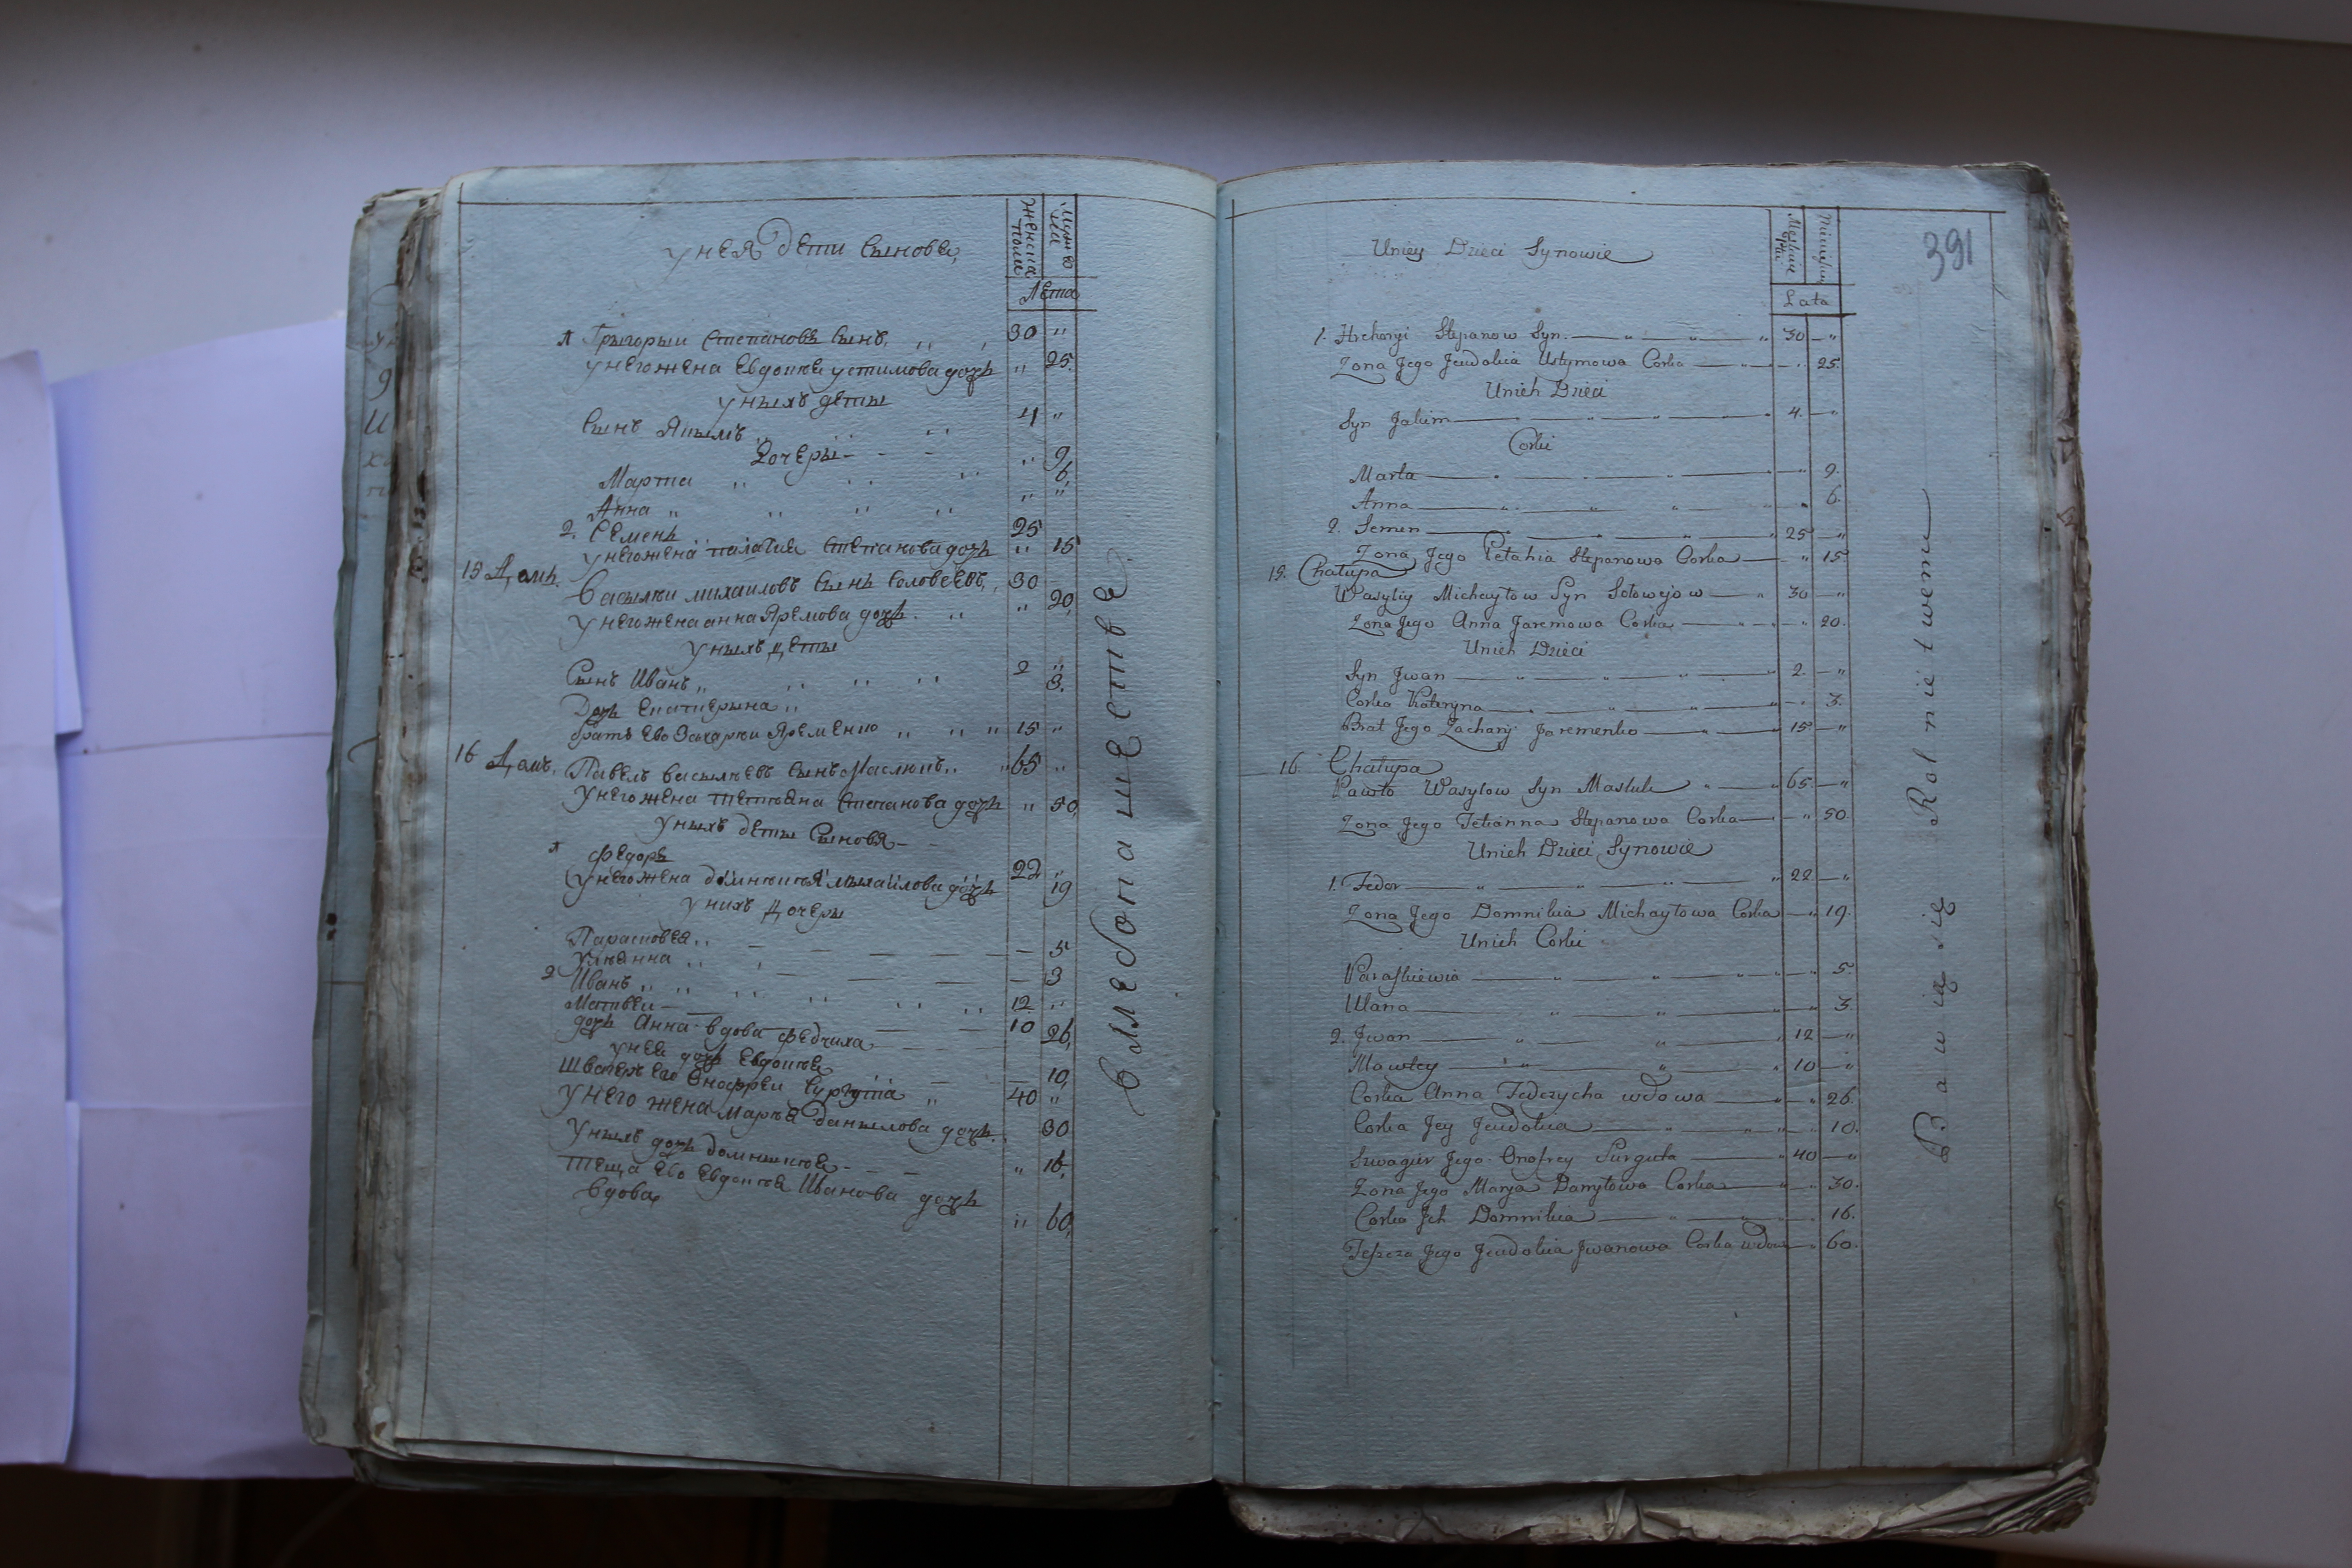 У нея дети сынове
Женска полу
Мужеска
Лета
1 Грыгорыи Степановъ сынъ 30 "
У него жена Евдокѣя Устимова дочь " 25.
У ныхъ деты
Сынъ Якымъ 4 "
Дочеры
Марта " 9
Анна " 6
2. Семенъ 25 "
У него жена Палагия Степанова дочь " 15
15 Домъ.
Васылѣи Михаиловъ сынъ Соловеевъ 30
У него жена Анна Яремова дочь " 20
У ныхъ деты
Сынъ Иванъ 2 "
Дочь Екатерына 3.
братъ Ево Захарѣи Яременко 15 "
16 Домъ. Павелъ Васылѣевъ сынъ Маслюкъ 65 "
У него жена Тетьяна Степанова дочь " 50
У ныхъ деты сыновя
1 Федоръ 22 "
У него жена Домнѣкѣя Мыхаилова дочь 19
У нихъ дочеры
Парасковея 5
Ульянна 3
2 Иванъ 12 "
Матвеи 10
дочь Анна вдова Федчиха 26
У неи дочь Евдокѣя 10
Швагеръ Его Онофреи Сургута 40 "
У него жена Марѣя Данылова дочь 30
У ныхъ дочь Домныкѣя " 16
Теща Ево Евдокѣя Иванова дочь
вдова " 60
в хлебопашестве
391
Uniey Dzieci Synowie
Męskiey Płci
Lata
1. Hrehoryi Stepanow Syn 30 "
Zona Jego Jewdokia Ustymowa Corka " 25.
Unich Dzieci
Syn Jakim 4. "
Corki
Marta " 9.
Anna " 6.
2. Semen 25 "
Zona Jego Pelahia Stepanowa Corka " 15
15. Chałupa
Wasyliy Michayłow Syn Sołowejow 30 "
Zona Jego Anna Jaremowa Corka " 20.
Unich Dzieci
Syn Jwan 2. "
Corka Kateryna " 3.
Brat Jego Zachary Jaremenko 15 "
16. Chałupa
Pawło Wasylow Syn Masluk 65 "
Zona Jego Tetianna Stepanowa Corka " 50
Unich Dzieci Synowie
1. Fedor 22 "
Zona Jego Domnikia Michayłowa Corka " 19.
Unich Corki
Paraskiewia " 5.
Ulana " 3.
2. Jwan 12 "
Mawtey 10 "
Corka Anna Fedczycha wdowa " 26.
Corka Jey Jewdokia " 10.
Szwagier Jego Onofrey Surguta 40 "
Zona Jego Marya Danyłowa Corka " 30.
Corka Jch Domnikia " 16.
Teszcza Jego Jewdokia Jwanowa Corka wdowa " 60.
Bawią się Rolnictwem